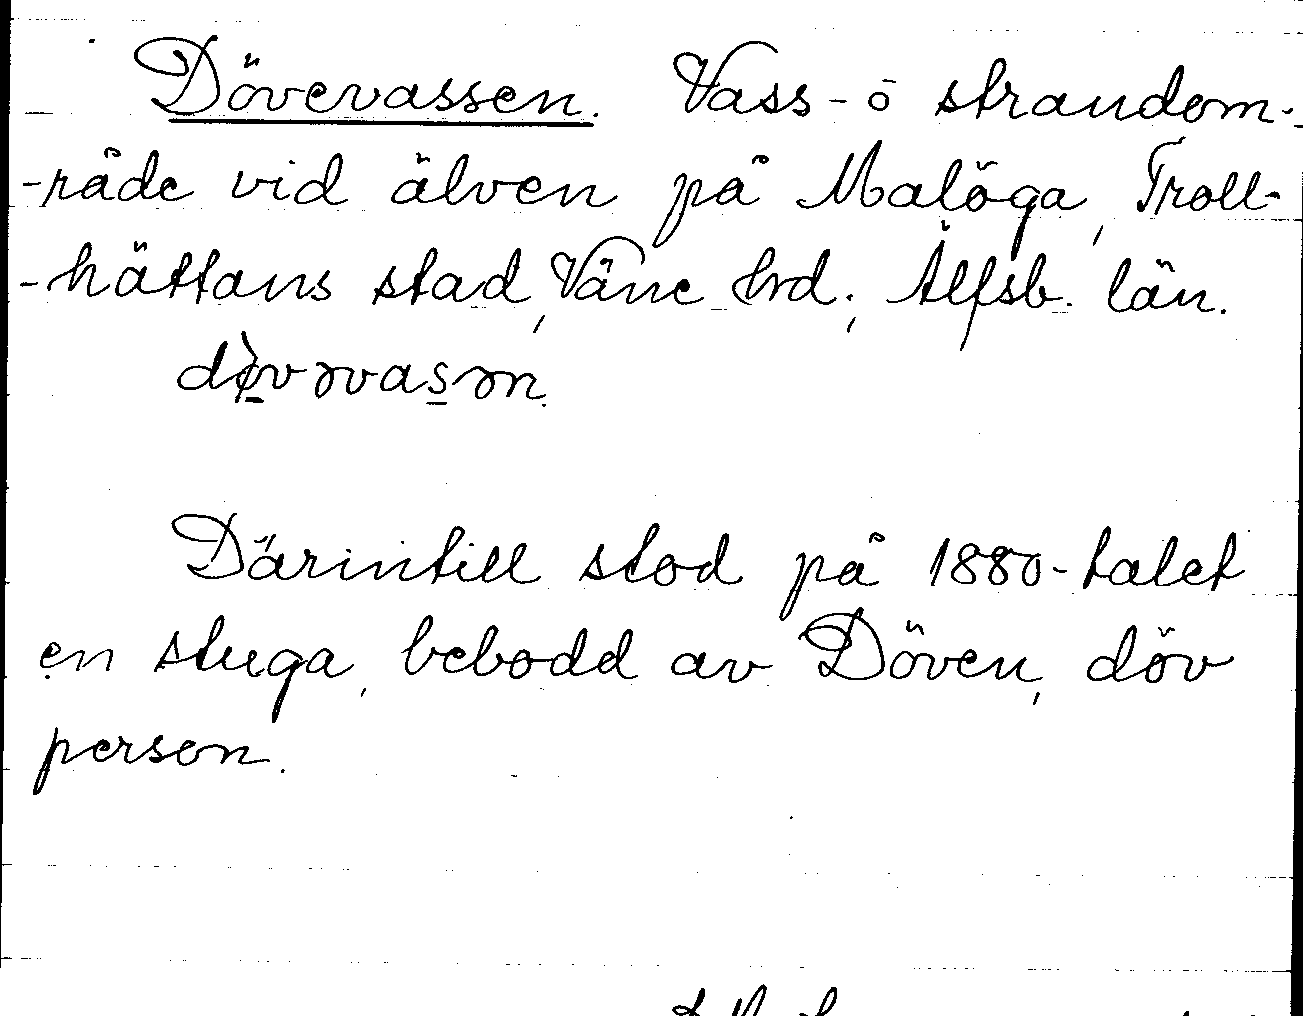 Dövevassen. Vass- ō strandom-
-råde vid älven på Malöga, Troll-
-hättans stad, Väne hrd., Älfsb. län.
Därintill stod på 1880-talet
en stuga, bebodd av Döven, döv
person.